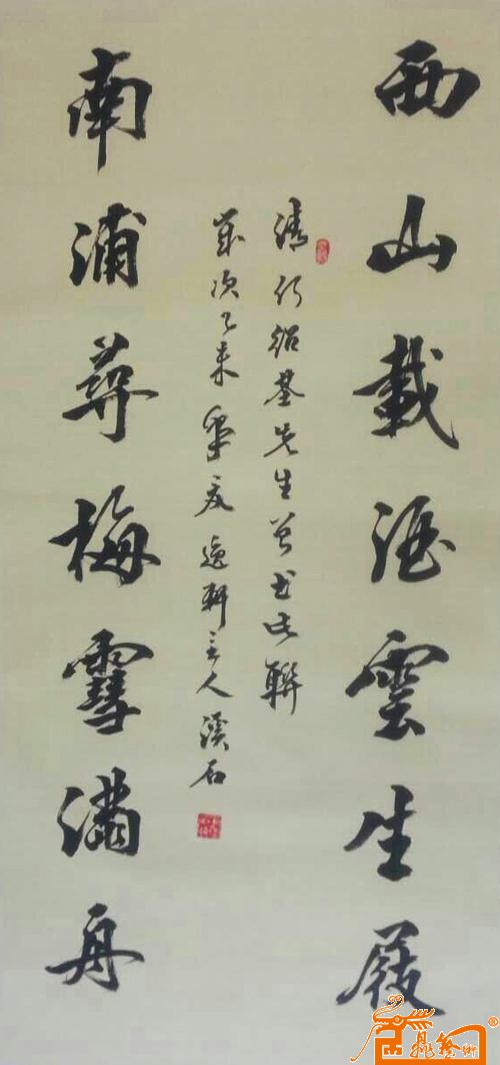 西山載酒雲生屐
清何紹基先生曾書此聯
歲次乙未夏逸軒主人溪石
南浦尋梅雪滿舟